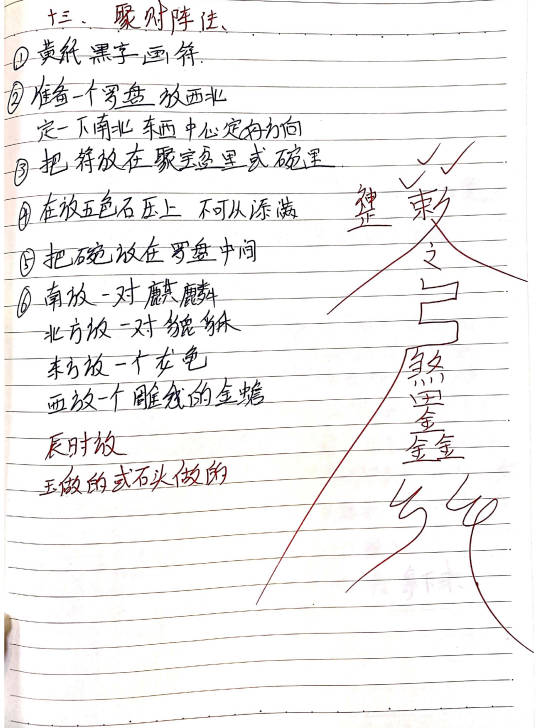 十三、聚财阵法、
① 黄纸黑字画符.
② 准备一个罗盘放西北
定一下南北东西中心定好方向
③ 把符放在聚宝盆里或碗里
④ 在放五色石压上 不可以添满
⑤ 把碗放在罗盘中间
⑥ 南放一对麒麟
北方放一对貔貅
东方放一个龙龟
西放一个雕钱的金蟾
辰时放
玉做的或石头做的
敕
煞
鑫